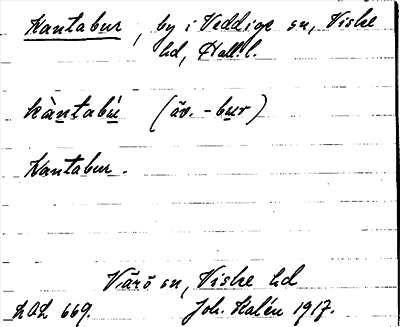 Kantabur, by i Veddige sn, Viske
hd, Hall. l.
kàntabú (äv. -bur)
Kantabur.
Värö sn, Viske hd
LAL 669. Joh. Kalén 1917.